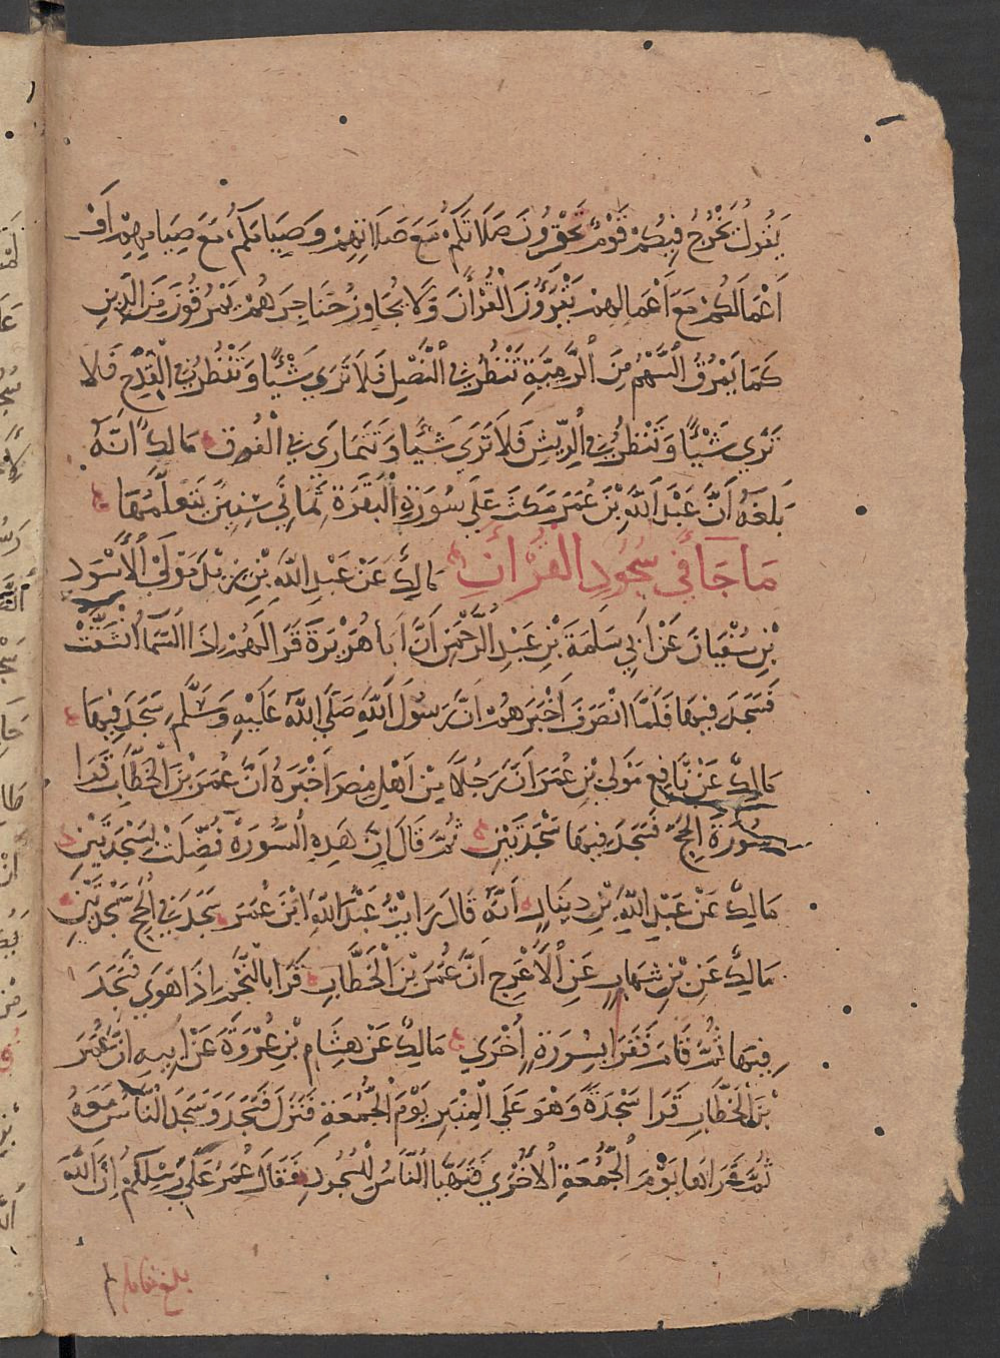 يَقُولُ يَخْرُجُ فِيكُمْ قَوْمٌ تَحْقِرُونَ صَلَاتَكُمْ مَعَ صَلَاتِهِمْ وَصِيَامَكُمْ مَعَ صِيَامِهِمْ اَوْ
اَعْمَالَكُمْ مَعَ اَعْمَالِهِمْ يَقْرَؤُنَ الْقُرْأَنَ وَلَا يُجَاوِزُ حَنَاجِرَهُمْ يَمْرُقُونَ مِنَ الدِّينِ
كَمَا يَمْرُقُ السَّهْمُ مِنَ الرَّمِيَّةِ تَنْظُرُ فِي النَّصْلِ فَلَا تَرَي شَيْئًا وَتَنْظُرُ فِي الْقِدْحِ فَلَا
تَرَي شَيْئًا وَتَنْظُرُ فِي الرِّيشِ فَلَا تَرَي شَيْئًا وَتَتَمَارَي فِي الْفُوقِ مَالِكٌ اَنَّهُ
بَلَغَهُ اَنَّ عَبْدَ اللَّهِ بْنَ عُمَرَ مَكَثَ عَلَي سُورَةِ الْبَقَرَةِ ثَمَانِي سِنِينَ يَتَعَلَّمُهَا
مَا جَآءَ فِي سُجُودِ الْقُرْاٰنِ مَالِكٌ عَنْ عَبْدِ اللَّهِ بْنِ يَزِيدَ مَوْلَي الْأَسْوَدِ
بْنِ سُفْيَانَ عَنْ اَبِي سَلَمَةَ بْنِ عَبْدِ الرَّحْمٰنِ اَنَّ اَبَا هُرَيْرَةَ قَرَا لَهُمْ اِذَا السَّمَآءُ انْشَقَّتْ
فَسَجَدَ فِيهَا فَلَمَّا انْصَرَفَ اَخْبَرَهُمْ اَنَّ رَسُولَ اللَّهِ صَلَّي اللَّهُ عَلَيْهِ وَسَلَّمَ سَجَدَ فِيهَا
مَالِكٌ عَنْ نَافِعٍ مَوْلَي بْنِ عُمَرَ اَنَّ رَجُلًا مِنْ اَهْلِ مِصْرَ اَخْبَرَهُ اَنَّ عُمَرَ بْنَ الْخَطَّابِ قَرَا
سُورَةَ الْحَجِّ فَسَجَدَ فِيهَا سَجْدَتَيْنِ ثُمَّ قَالَ اِنَّ هَذِهِ السُّورَةَ فُضِّلَتْ بِسَجْدَتَيْنِ
مَالِكٌ عَنْ عَبْدِ اللَّهِ بْنِ دِينَارٍ اَنَّهُ قَالَ رَايْتُ عَبْدَ اللَّهِ ابْنَ عُمَرَ سَجَدَ فِي الْحَجِّ سَجْدَتَيْنِ
مَالِكٌ عَنِ بْنِ شِهَابٍ عَنِ الْأَعْرَجِ اَنَّ عُمَرَ بْنَ الْخَطَّابِ قَرَا بِالنَّجْمِ اِذَا هَوَي فَسَجَدَ
فِيهَا ثُمَّ قَامَ فَقَرَا بِسُورَةٍ اُخْرَي مَالِكٌ عَنْ هِشَامِ بْنِ عُرْوَةَ عَنْ اَبِيهِ اَنَّ عُمَرَ
بْنَ الْخَطَّابِ قَرَا سَجْدَةً وَهْوَ عَلَي الْمِنْبَرِ يَوْمَ الْجُمُعَةِ فَنَزَلَ فَسَجَدَ وَسَجَدَ النَّاسُ مَعَهُ
ثُمَّ قَرَاهَا يَوْمَ الْجُمُعَةِ الْأُخْرَي فَتَهَيَّا النَّاسُ لِلسُّجُودِ فَقَالَ عُمَرُ عَلَي رِسْلِكُمْ اِنَّ اللَّهَ
بلغ مقابلة